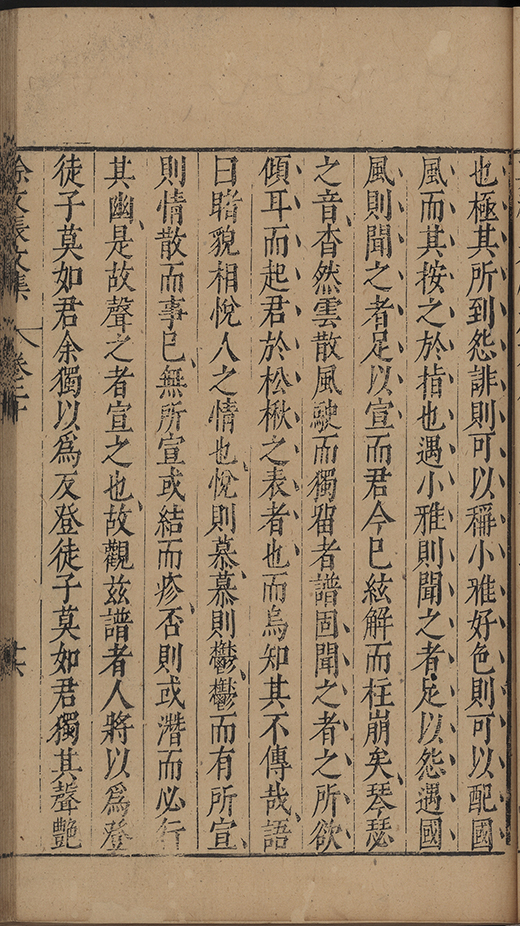 也極其所到怨誹則可以稱小雅好色則可以配國
風而其按之於指也遇小雅則聞之者足以怨遇國
風則聞之者足以宣而君今已絃解而柱崩矣琴瑟
之音杳然雲散風駛而獨留者譜固聞之者之所欲
傾耳而起君於松楸之表者也而烏知其不傳哉語
曰睹貌相悅人之情也悅則慕慕則鬱鬱而有所宣
則情散而事已無所宣或結而疹否則或潛而必行
其幽是故聲之者宣之也故觀兹譜者人將以爲登
徒子莫如君余獨以爲反登徒子莫如君獨其聲艷
徐文長文集 卷二十 十六